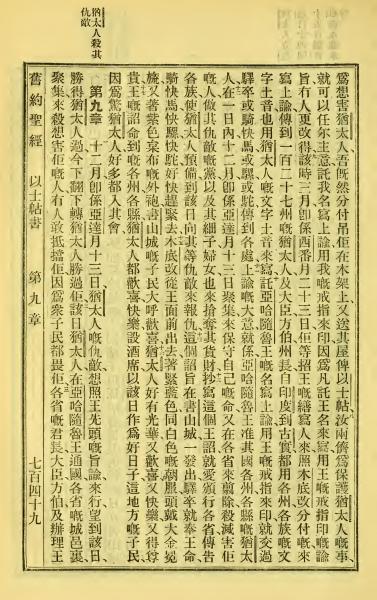 猶太人殺其
仇敵
爲想害猶太人、吾旣然分付吊佢在木架上、又送其屋俾以士帖、汝兩儕爲保護猶太人嘅事、
就可以任年主意託我名寫上諭用我嘅戒指來印因爲凡託王名來寫用王嘅戒指印嘅諭
旨冇人更改得該時三月卽係西番月二十三日佢等招王嘅繕寫人來照末底改分付嘅來
寫上諭傳到一百二十七州嘅猶太人及大臣方伯州長自印度到古實都用各州各族嘅文
字土音也用猶太人嘅文字土音來寫託亞哈隨魯王嘅名寫上諭用王嘅戒指來印就交過
驛卒或騎快馬或騾或駝傳到各處上諭嘅大意就係亞哈隨魯王准其國各州各縣嘅猶太
人在一日內十二月卽係亞達月十三日聚集來保守自己嘅命又在各省來翦除殺滅害佢
嘅人做其仇敵嘅黨以及其細子婦女也來搶奪其貨財抄寫這個王詔就愛頒行各省傳告
各族使猶太人預備到該日向其等仇敵來報仇這個詔旨在書山城一發出驛卒就奉王命
騎快馬快騾快駝好快趕緊去末底改從王面前出去著緊藍色同白色嘅朝服頭戴大金冕
旒又著紫色枲布嘅外袍書山城嘅子民大呼歡喜猶太人好有光華又歡喜又快樂又得尊
貴王嘅詔命到嘅各州各縣猶太人都歡喜快樂設酒席以該日作爲好日子這地方嘅子民
因爲驚猶太人好多都入其會
第九章 十二月卽係亞達月十三日猶太人嘅仇敵想照王先頭嘅旨諭來行望到該日
勝得猶太人過今下翻轉猶太人勝過佢該日猶太人在亞哈隨魯王通國各省嘅城邑裏
聚集來殺想害佢嘅人冇人敢抵擋佢因爲衆子民都畏佢各省嘅君長大臣方伯及辦理王
舊約聖經 以士帖書 第九章 七百四十九